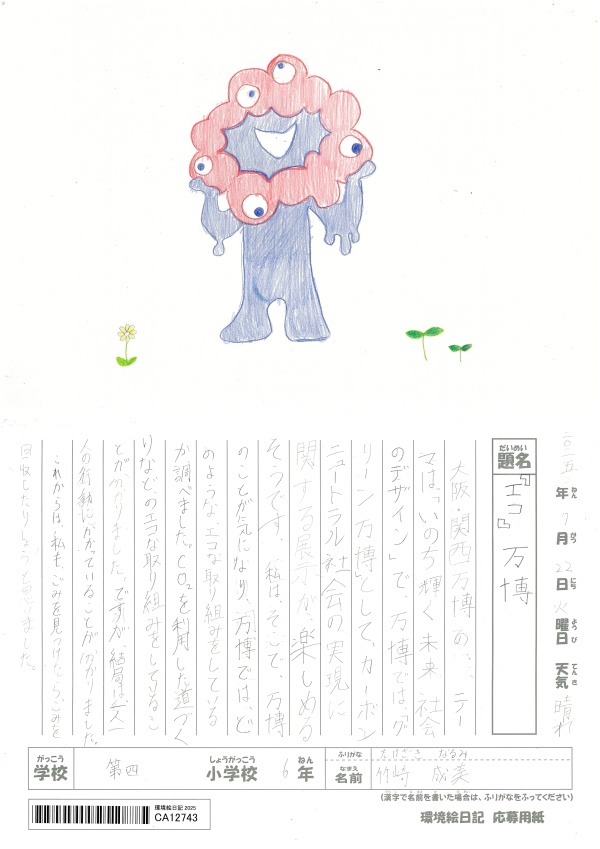 二〇二五年7月22日火曜日 天気 晴れ
ねん がつ にち ようび てんき
だいめい
題名 『エコ』万博
大阪・関西万博の、テー
マは「いのち輝く未来社会
のデザイン」で、万博では、「グ
リーン万博」として、カーボン
ニュートラル社会の実現に
関する展示が、楽しめる
そうです。私は、そこで、万博
のことが気になり、万博では、ど
のようなエコな取り組みをしている
か調べました。CO₂を利用した道づく
りなどのエコな取り組みをしているこ
とが分かりました。ですが、結局は、一人一
人の行動にかかっていることが分かりました。
これからは、私も、ごみを見つけたら、ごみを
回収したりしようと思いました。
がっこう しょうがっこう ねん
学校 第四 小学校 6年
ふりがな たけざき なるみ
なまえ
名前 竹崎 成美
(漢字で名前を書いた場合は、ふりがなをふってください)
環境絵日記 応募用紙
環境絵日記 2025
CA12743